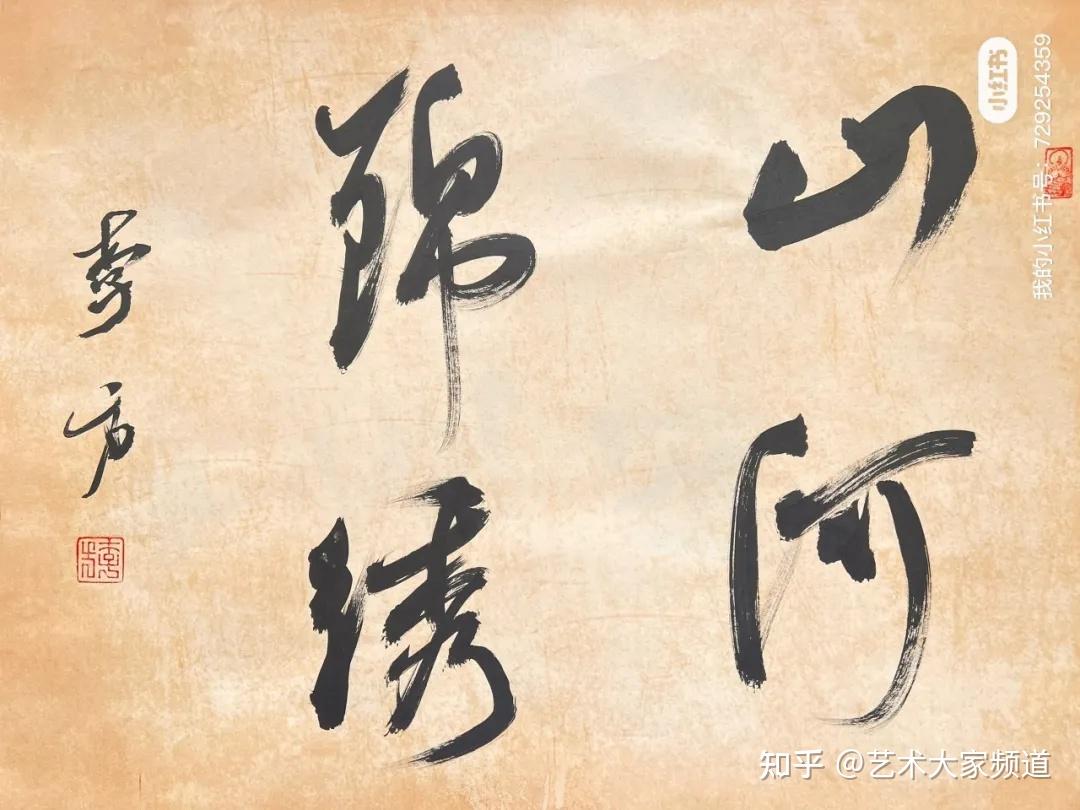 山河
锦绣
李方
小红书
我的小红书号：729254359
知乎 @艺术大家频道